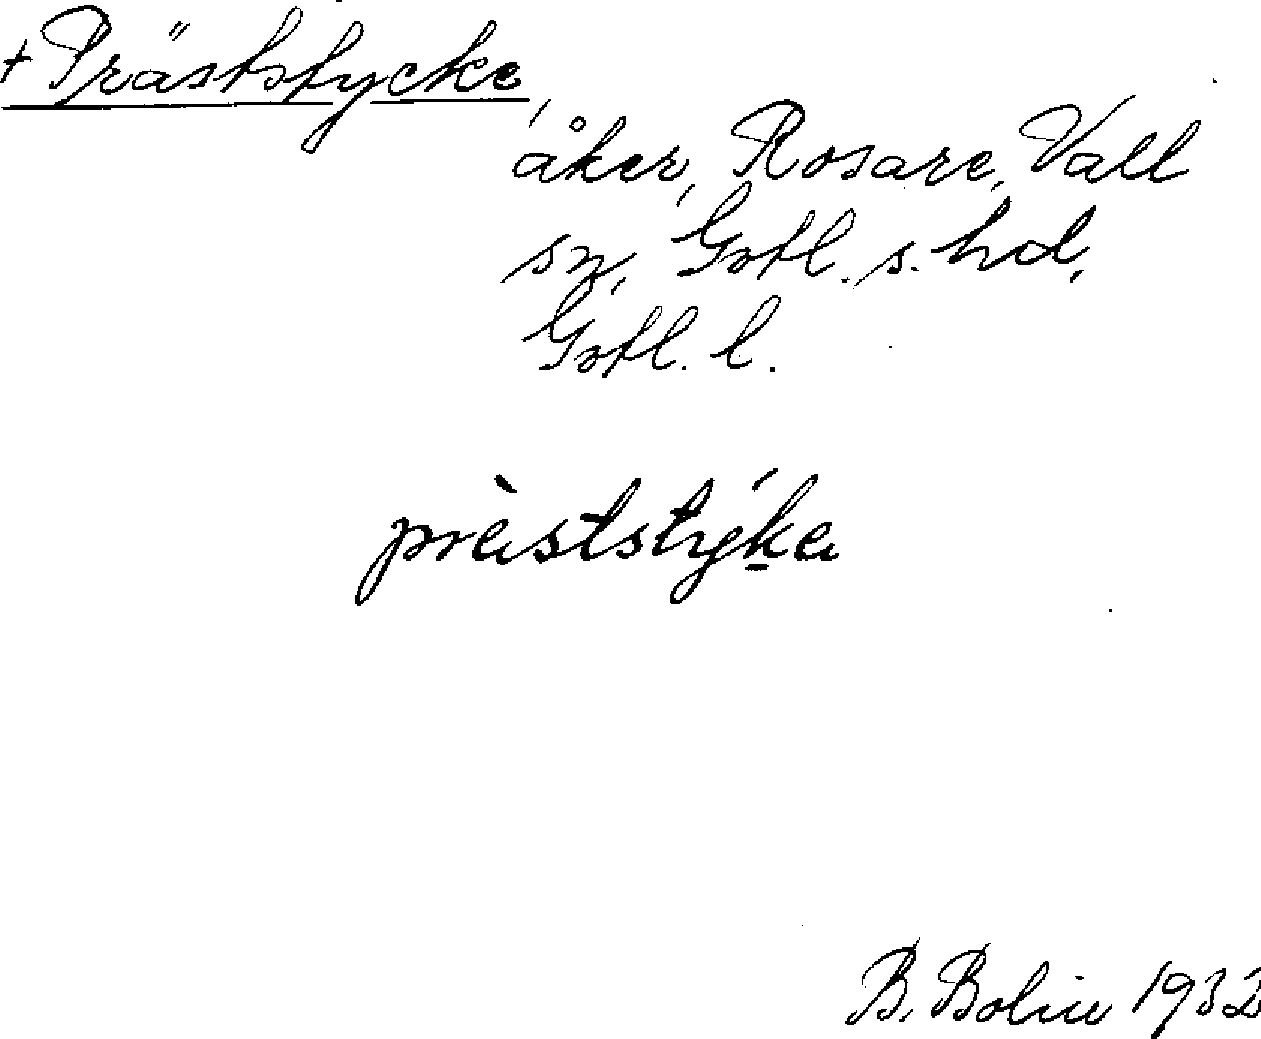 + Präststycke,
åker, Rosare, Vall
sn, Gotl. s. hd,
Gotl. l.
prèststýka
B. Bolin 1932